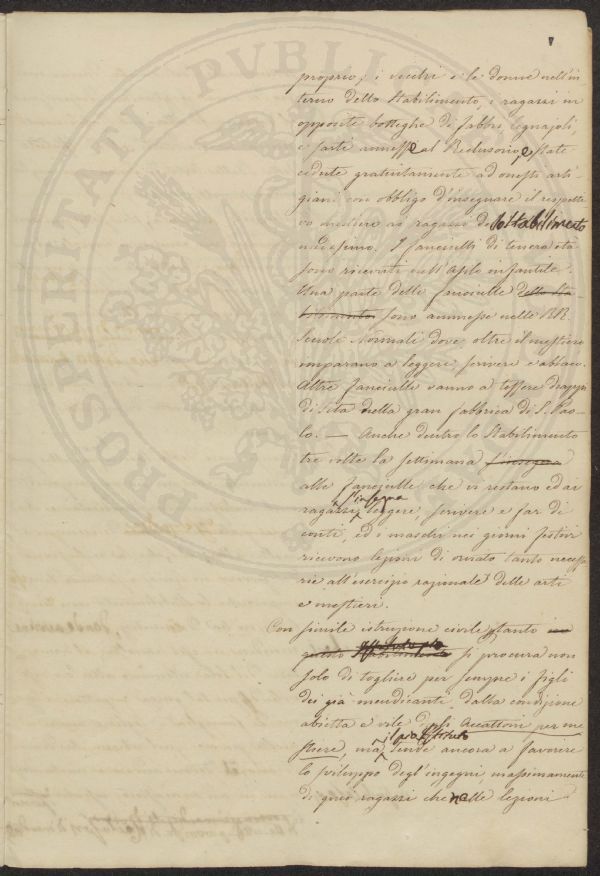 proprio; i vecchi e le donne nell'in
terno dello Stabilimento, i ragazzi in
opposite botteghe di fabbri, legnajoli,
e sarti annesse al Reclusorio, e state
cedute gratuitamente ad onesti arti-
giani con obbligo d'insegnare il respetti
vo mestiere ai ragazzi dello Stabilimento
medesimo. I fanciulli di tenera età
sono ricevuti nell'Asilo infantile.
Una parte delle fanciulle dello Sta-
bilimento sono ammesse nelle RR.
Scuole Normali dove, oltre il mestiere
imparano a leggere, scrivere e abbaco.
Altre fanciulle vanno a tessere drappi
di seta nella gran fabbrica di S. Pao-
lo. — Anche dentro lo Stabilimento
tre volte la settimana s'insegna
alle fanciulle che vi restano ed ai
s'insegna
ragazzi, leggere, scrivere e far di
conti, ed i maschi nei giorni festivi
ricevono lezioni di ornato tanto necessa
rie all'esercizio razionale delle arti
e mestieri.
Con simile istruzione civile, tanto
questo Stabilimento si procura non
solo di togliere per sempre i figli
dei già mendicanti dalla condizione
abietta e vile degli Accattoni per me
il pio Istituto
stiere, ma tende ancora a favorire
lo sviluppo degl'ingegni, massimamente
di quei ragazzi che nelle lezioni
PROSPERITATI PUBLICAE